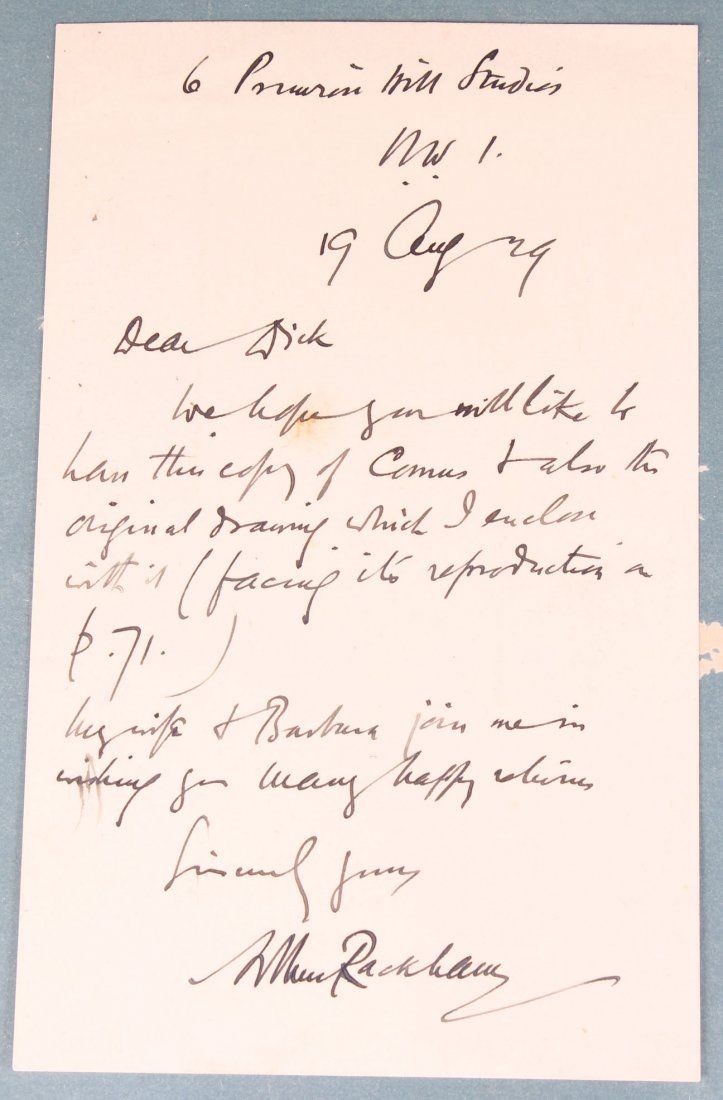 6 Primrose Hill Studios
NW 1.
19 Aug 29
Dear Dick
We hope you will like to
have this copy of Comus & also the
original drawing which I enclose
with it (facing it's reproduction on
p. 71. )
My wife & Barbara join me in
wishing you many happy returns
Sincerely yours
Arthur Rackham